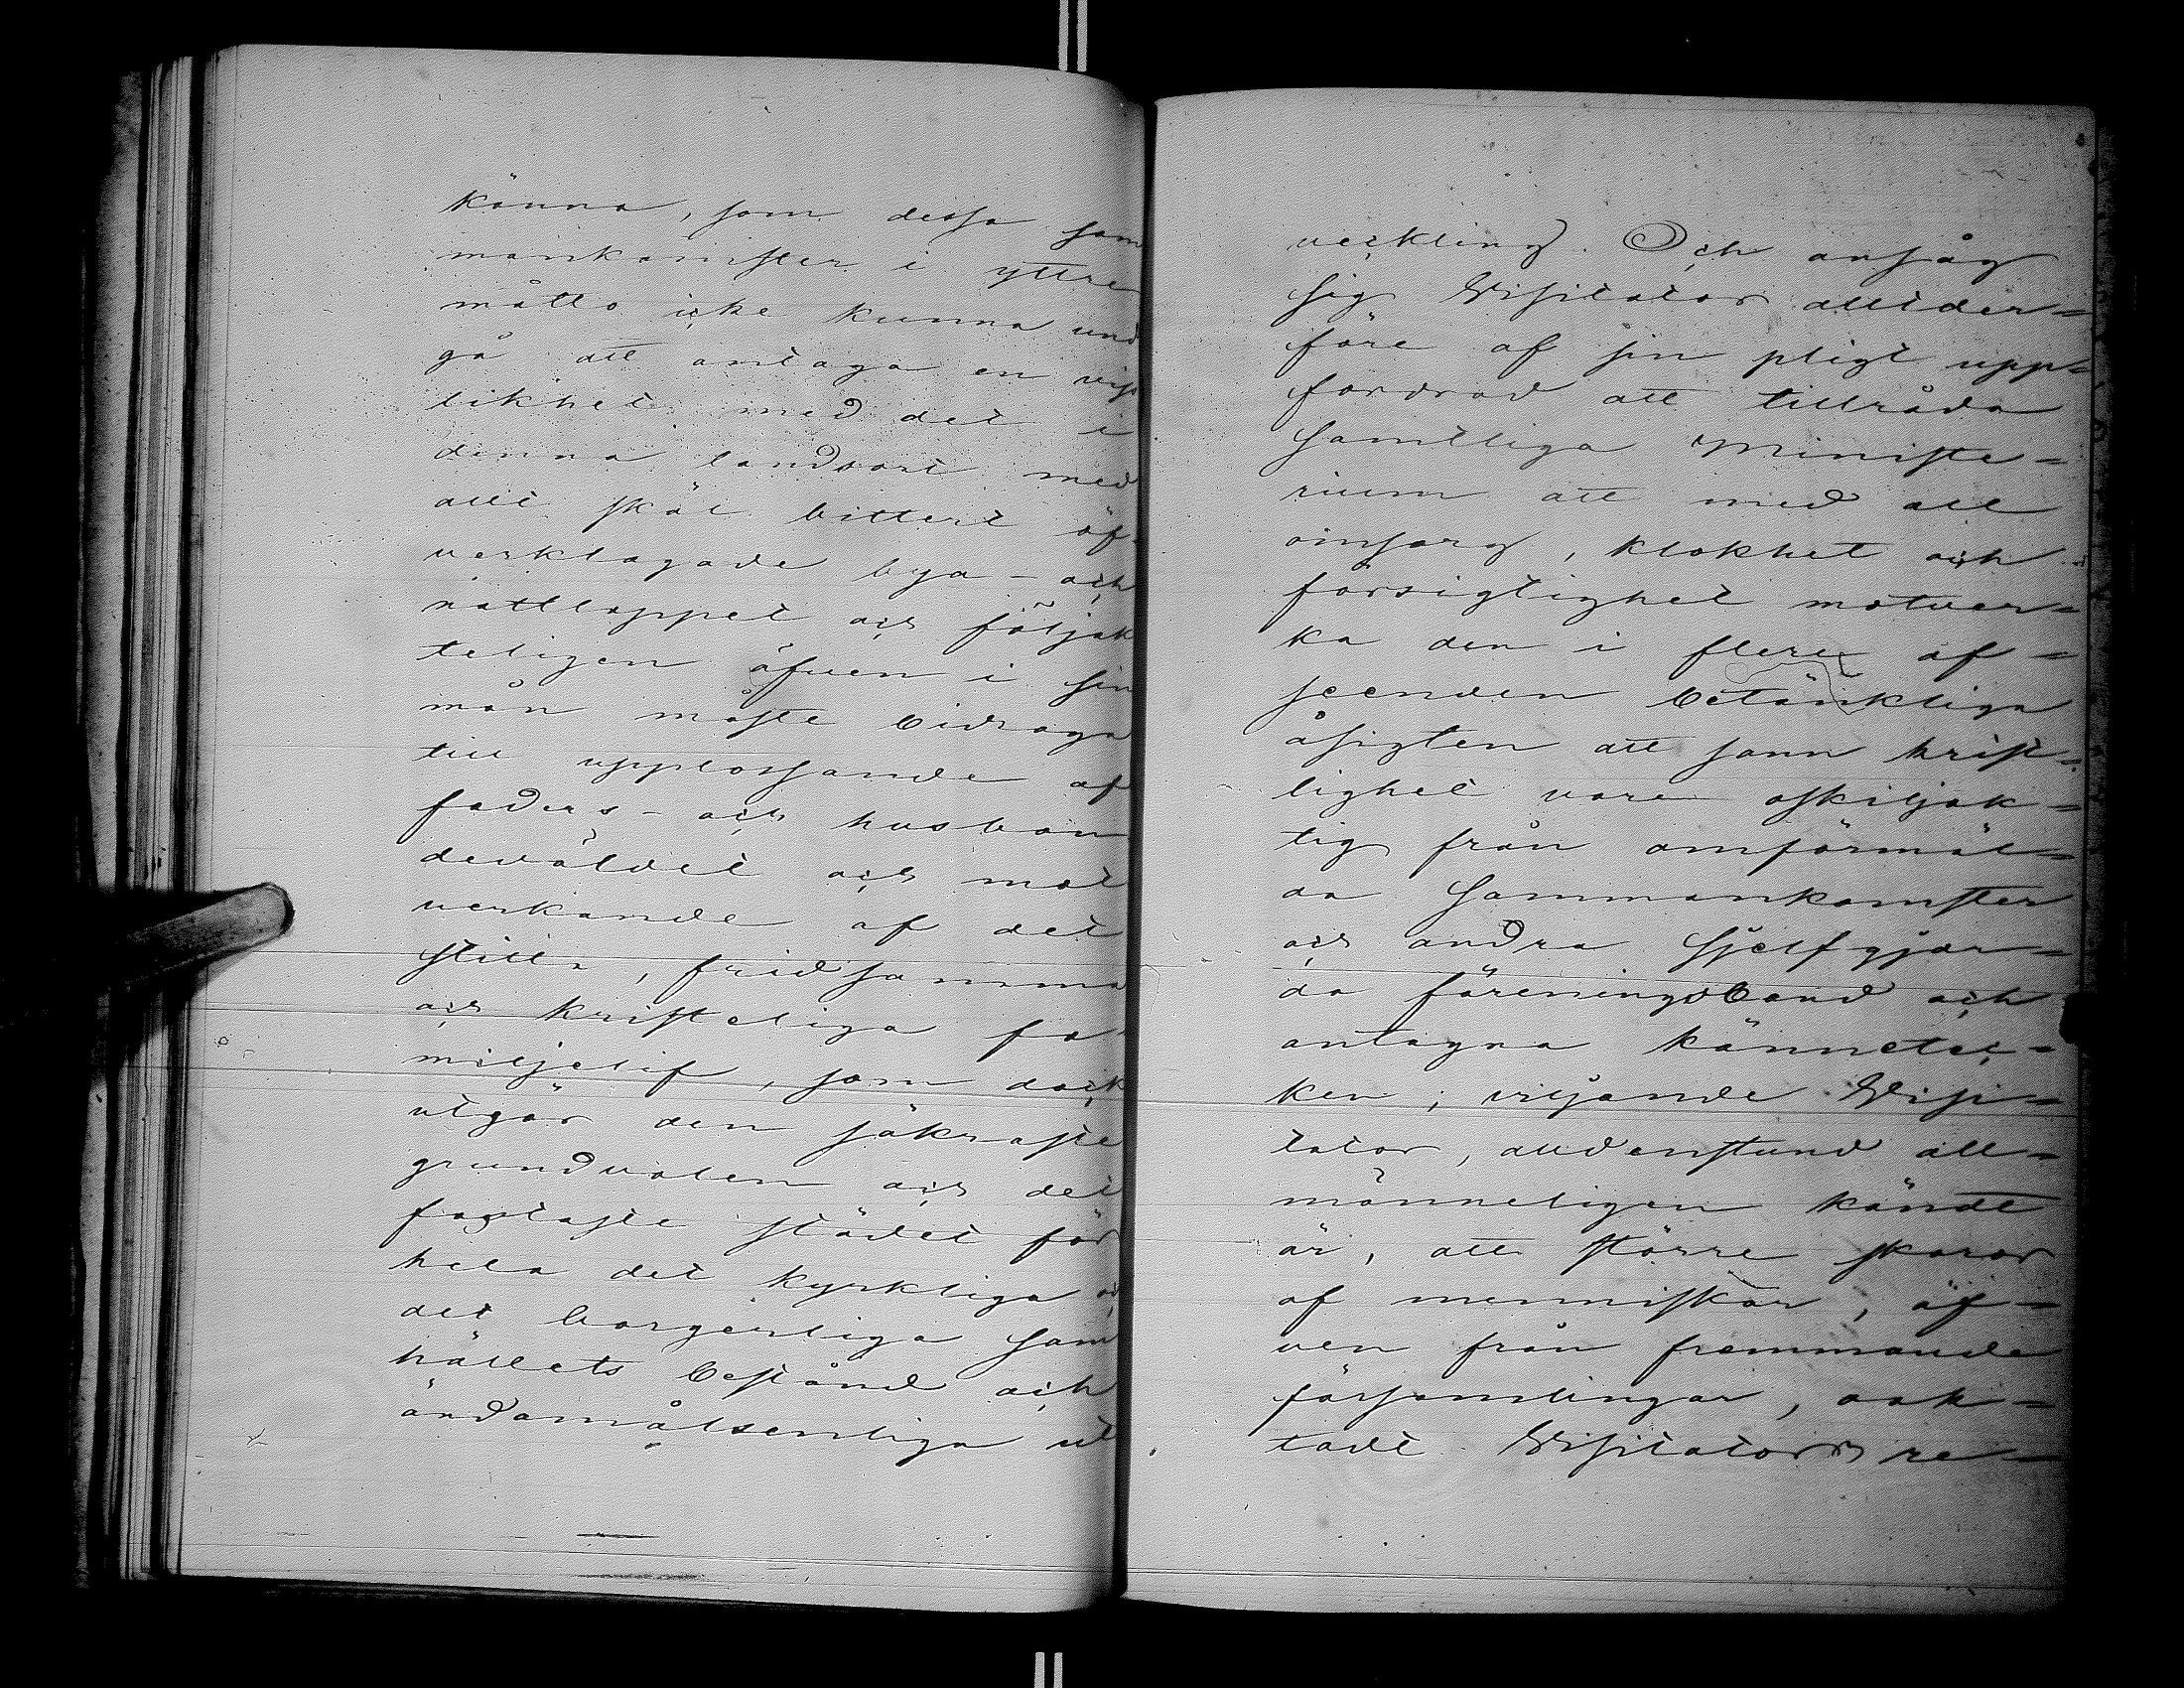 känna, som dessa sam
mankomster i yttre
måtto icke kunna und
gå att antaga en viss
likhet med det i
denna landsort med
allt skäl bittert öf-
verklagade bya- och
nattloppet och följak
teligen äfven i sin
mån måste bidraga
till upplossande af
faders- och husbon
deväldet och mot
verkande af det
stilla, fridsamma
och kristeliga fa-
miljelif, som dock
utgör den säkraste
grundvalen och det
fastaste stödet för
hela det kyrkliga och
det borgerliga sam
hällets bestånd och
ändamålsenliga ut
veckling. Och ansåg
sig Visitator alltder=
före af sin pligt upp=
fordrad att tillråda
samtliga Ministe=
rium att med all
omsorg, klokhet och
försigtighet motver=
ka den i flere af=
seenden betänkliga
åsigten att sann krist=
lighet vore oskiljak=
tig från omförmäl=
da sammankomster
och andra sjelfgjor=
da föreningsband och
antagna kännetec=
ken; viljande Visi=
tator, alldenstund all=
männeligen kändt
är, att större skaror
af menniskor, äf=
ven från främmande
församlingar, oak=
tadt Visitators re=